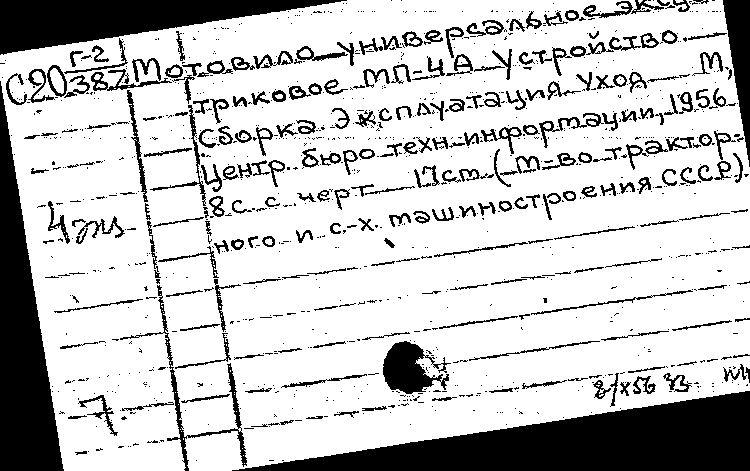 Г-2
С20 387 Мотовило универсальное эксцен
триковое МП-4А. Устройство.
Сборка. Эксплуатация. Уход. М,
Центр. бюро техн. информации, 1956
8с. с черт. 17cm (М-во трактор-
ного и с-х. машиностроения СССР).
4 экз
7
8/X56